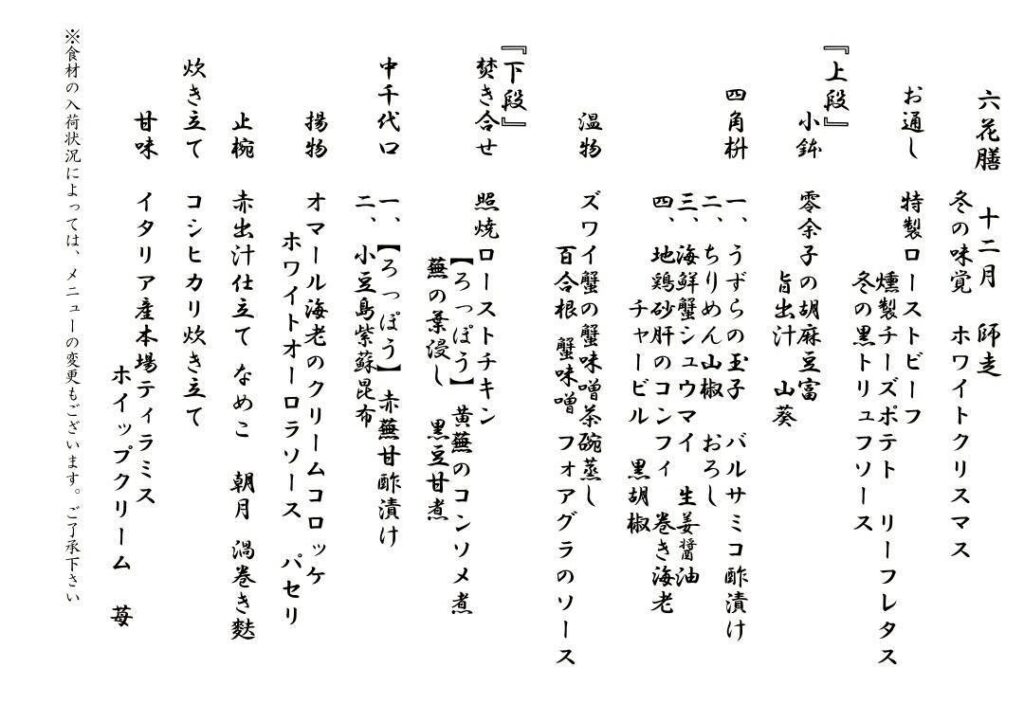 六花膳　十二月　師走
冬の味覚　ホワイトクリスマス
お通し　特製ローストビーフ
燻製チーズポテト　リーフレタス
冬の黒トリュフソース
『上段』
小鉢　零余子の胡麻豆富
旨出汁　山葵
四角枡　一、うずらの玉子　バルサミコ酢漬け
二、ちりめん山椒　おろし
三、海鮮蟹シュウマイ　生姜醤油
四、地鶏砂肝のコンフィ　巻き海老
チャービル　黒胡椒
温物　ズワイ蟹の蟹味噌茶碗蒸し
百合根　蟹味噌　フォアグラのソース
『下段』
焚き合せ　照焼ローストチキン
【ろっぽう】黄蕪のコンソメ煮
蕪の葉浸し　黒豆甘煮
中千代口　一、【ろっぽう】赤蕪甘酢漬け
二、小豆島紫蘇昆布
揚物　オマール海老のクリームコロッケ
ホワイトオーロラソース　パセリ
止椀　赤出汁仕立て　なめこ　朝月　渦巻き麩
炊き立て　コシヒカリ炊き立て
甘味　イタリア産本場ティラミス
ホイップクリーム　苺
※食材の入荷状況によっては、メニューの変更もございます。ご了承下さい